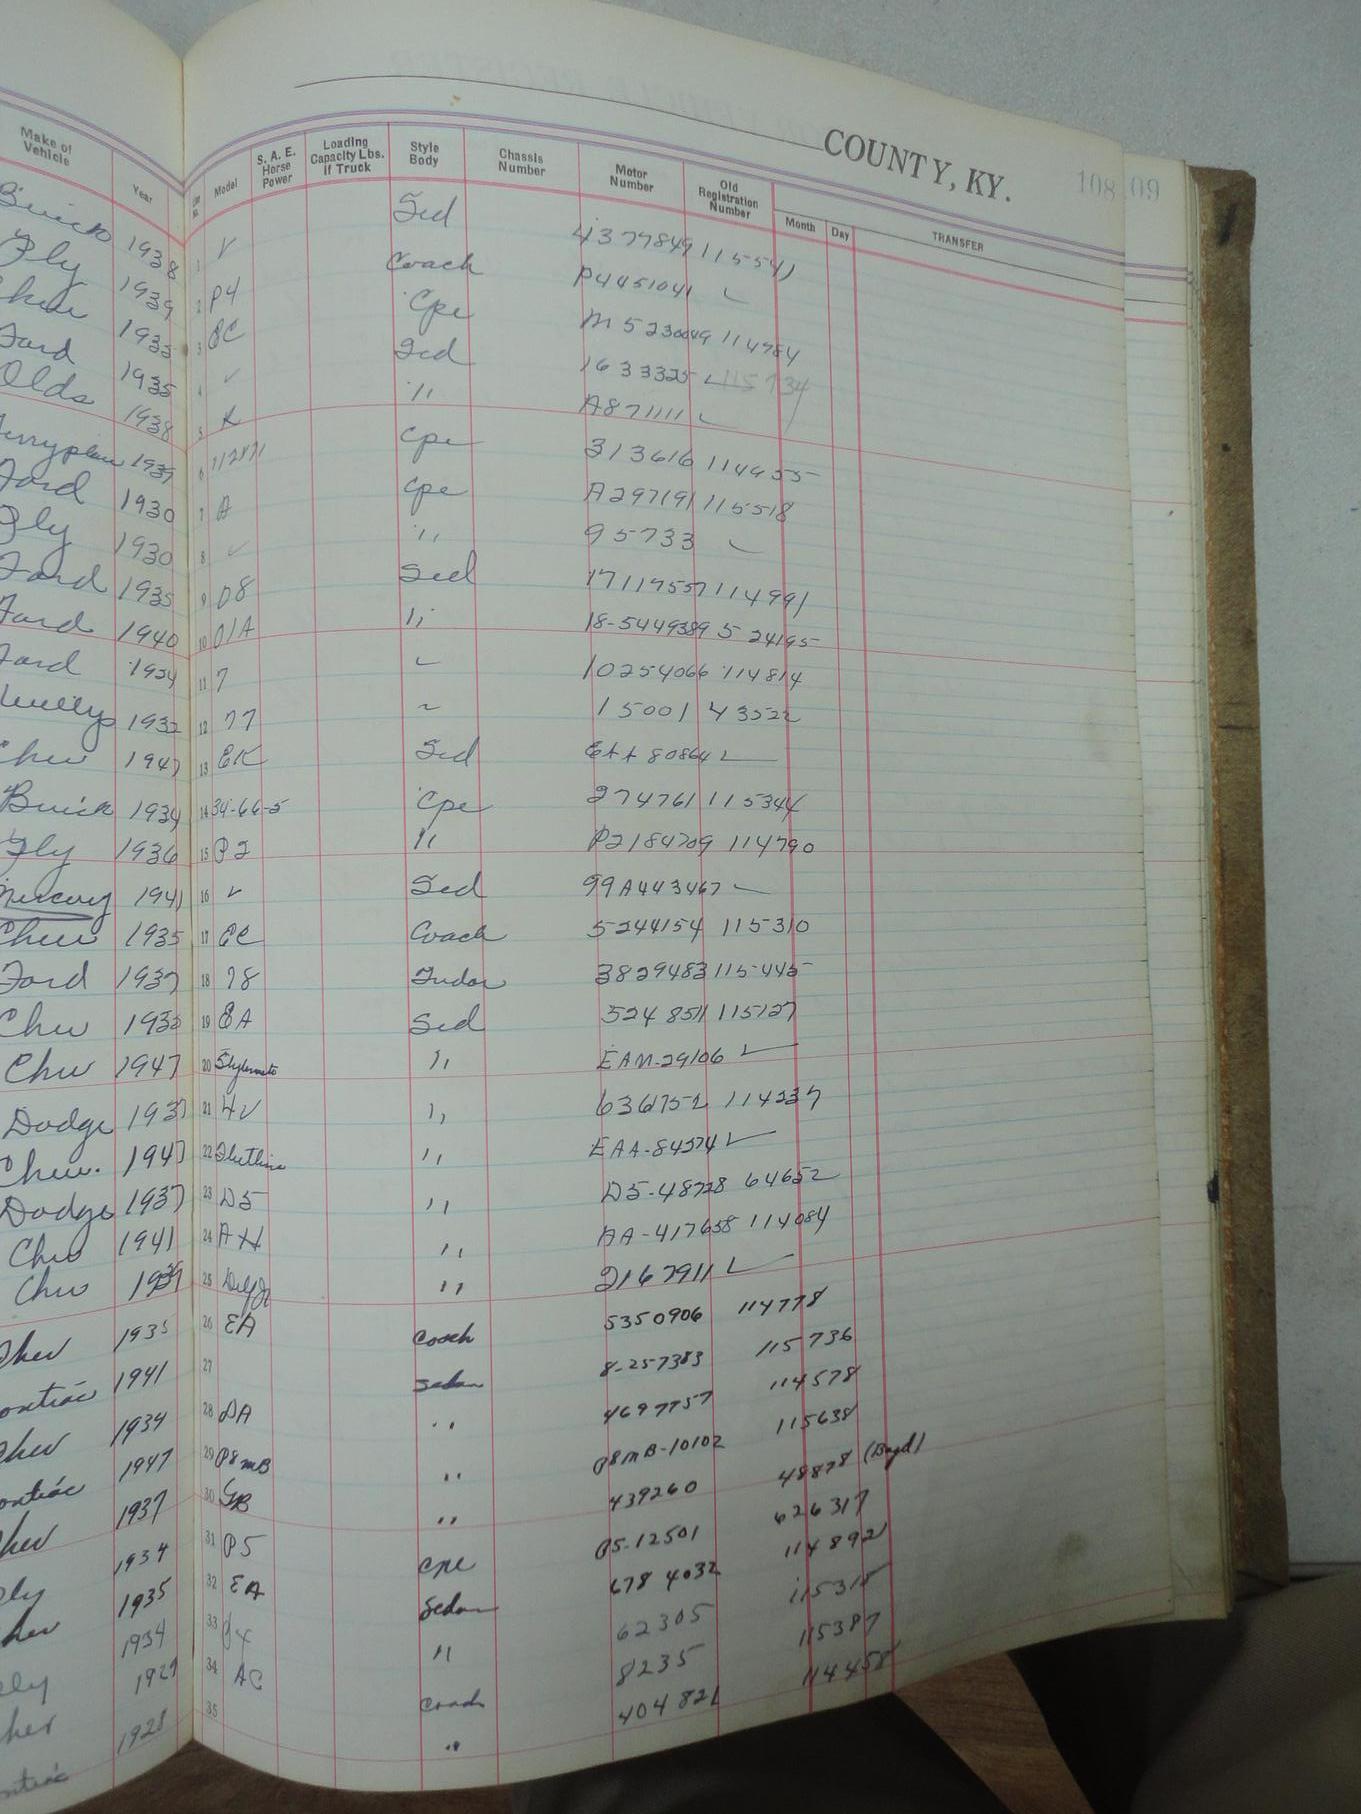 COUNTY, KY.
108 109
Make of Vehicle Year Line No. Model S. A. E. Horse Power Loading Capacity Lbs. If Truck Style Body Chassis Number Motor Number Old Registration Number Month Day TRANSFER
Buick 1938 1 ✓ Sed 43779849 115541
Ply 1939 2 P4 Coach P4451041 ✓
Chev 1935 3 EC Cpe M5230049 114784
Ford 1935 4 ✓ Sed 1633325 ✓ 115734
Olds 1938 5 K " A871111 ✓
1937 6 Cpe 313616 114955
Ford 1930 7 A Cpe A297191 115518
Ply 1930 8 ✓ " 95733 ✓
Ford 1935 9 D8 Sed 114991
Ford 1940 10 01A " 18-5449389 5 24195
Ford 1934 11 7 ✓ 10254066 114814
Willys 1932 12 77 ~ 15001 43522
Chev 1947 13 EK Sed 80864 ✓
Buick 1934 14 34-66-S Cpe 274761 115344
Ply 1936 15 P2 " P2184709 114790
Mercury 1941 16 ✓ Sed 99A443467 ✓
Chev 1935 17 EC Coach 5244154 115310
Ford 1937 18 78 Tudor 3829483 115445
Chev 1935 19 EA Sed 524851 115127
Chev 1947 20 " EAM-29106 ✓
Dodge 1937 21 " 114237
Chev. 1947 22 " EAA-84574 ✓
Dodge 1937 23 D5 " D5-48728 64652
Chev 1941 24 AH " AA-417658 114084
Chev 1939 25 " 2167911 ✓
Chev 1935 26 EA Coach 5350906 114778
Pontiac 1941 27 Sedan 8-257383 115736
Chev 1934 28 DA " 4697757 114578
Pontiac 1947 29 P8MB " P8MB-10102 115638
Chev 1937 30 GB " 439260 48878 (Boyd)
Ply 1934 31 P5 Cpe P5-12501 626317
Chev 1935 32 EA Sedan 678 4032 114892
1934 33 " 62305 115315
Chev 1929 34 AC Coach 8235 115387
Pontiac 1928 35 " 404821 114458